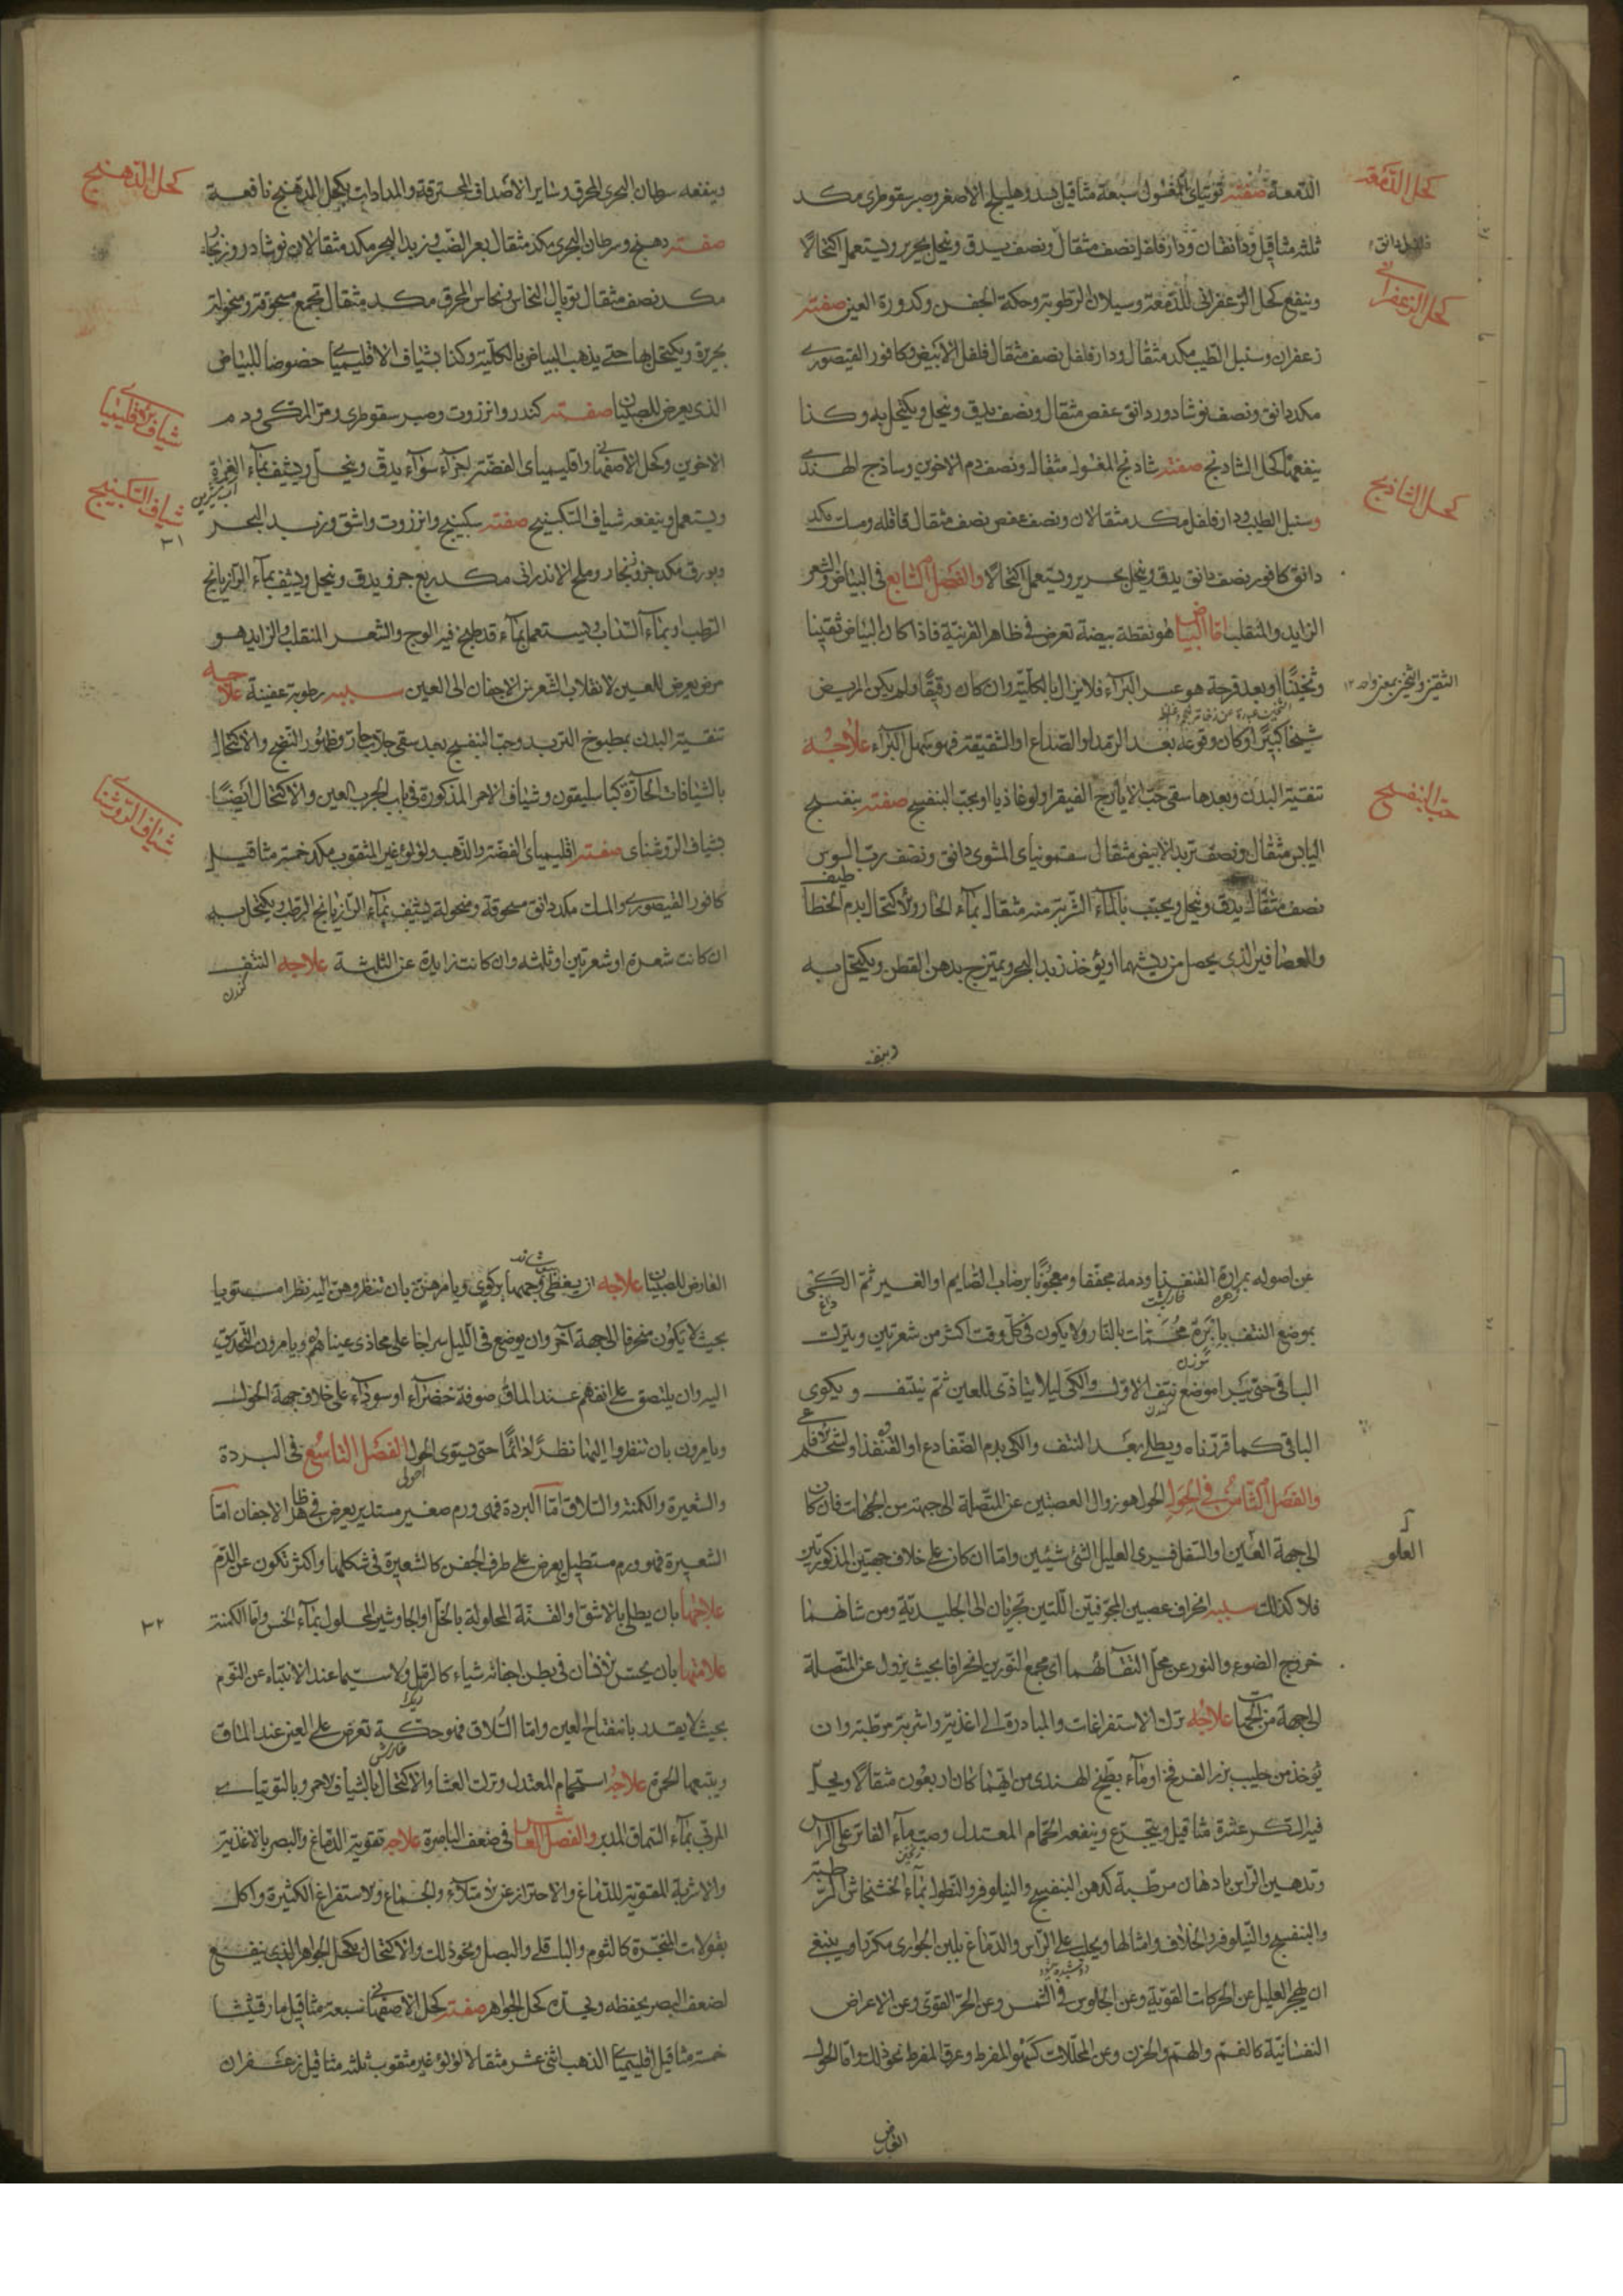 كحل الدمعة
الدمعة صفته توتياى المغسول سبعة مثاقيل هليلج الاصفر وصبر سقوطرى مكد
ثلثه مثاقيل ودانقان ودار فلفل نصف مثقال ونصف يدق وينخل بحرير ويستعمل اكتحالا
كحل الزعفرانى
وينفع كحل الزعفرانى للدمعة وسيلان الرطوبة وحكة الجفن وكدورة العين صفته
زعفران وسنبل الطيب مكد مثقال ودار فلفل نصف مثقال فلفل الابيض وكافور القيصورى
مكد دانق ونصف نوشادور دانق عفص مثقال ونصف يدق وينخل ويكتحل به وكذا
كحل الشاذنج
ينفعها كحل الشاذنج صفته شاذنج المغسول مثقال ونصف دم الاخوين وساذج الهندى
وسنبل الطيب ودار فلفل مكد مثقالان ونصف عفص نصف مثقال قاقله ومسك مكد
دانق كافور نصف دانق يدق وينخل بحرير ويستعمل اكتحالا والفصل السابع فى البياض والشعر
الزايد والمنقلب اما البياض هو نقطة بيضة تعرض فى ظاهر القرنية فاذا كان البياض
او بعد قرحة هو عسر البراء فلا يزال بالكلية وان كان رقيقا ولم يكن المريض
شيخا كبيرا وكان وقوعه بعد الرمد او الصداع او الشقيقة فهو سهل البراء علاجه
حب البنفسج
تنقية البدن وبعدها سقى حب الايارج الفيقرا ولوغاذيا او بحب البنفسج صفته بنفسج
اليابس مثقال ونصف تربد الابيض مثقال سقمونياى المشوى دانق ونصف رب السوس
نصف مثقال يدق وينخل ويحبب بالماء الشربة منه مثقال بماء الحار والاكتحال بدم الخطاطيف
والعصافير الذى يحصل من ريشهما او يؤخذ زبد البحر ويمتزج بدهن القطن ويكتحل به
وينفعه
كحل الدهنج
وينفعه سرطان البحرى المحرق وساير الاصداف المحترقة والمدادات بكحل الدهنج نافعة
صفته دهنج وسرطان البحرى مكد مثقال بعر الضب وزبد البحر مكد مثقالان نوشادر وزنجار
مكد نصف مثقال توبال النحاس ونحاس المحرق مكد مثقال تجمع مسحوقة ومنخولة
بحريرة ويكتحل بها حتى يذهب البياض بالكلية وكذا بشياف الاقليميا خصوصا للبياض
شياف اقليميا
الذى يعرض للصبيان صفته كندر وانزروت وصبر سقوطرى ومر المكى ودم
الاخوين وكحل الاصفهانى واقليمياى الفضة اجزاء سواء يدق وينخل ويشيف بماء
شياف السكبينج
ويستعمل وينفعه شياف السكبينج صفته سكبينج وانزروت واشق وزبد البحر
وبورق مكد جزو زنجار وملح الاندرانى مكد ربع جزو يدق وينخل ويشيف بماء الرازيانج
الرطب او بماء السذاب ويستعمل بماء قد طبخ فيه الوج والشعر المنقلب والزايد هو
مرض يعرض للعين لانقلاب الشعر من الاجفان الى العين سببه رطوبة عفينة علاجه
تنقية البدن بمطبوخ التربد وحب البنفسج بعد سقى جلاب حار وظهور النضج والاكتحال
بالشيافات الحارة كباسليقون وشياف الاحمر المذكورة فى باب الجرب العين والاكتحال ايضا
شياف الروشنا
بشياف الروشناى صفته اقليمياى الفضة والذهب ولؤلؤ غير المثقوب مكد خمسة مثاقيل
كافور القيصورى والمسك مكد دانق مسحوقة ومنخولة يشيف بماء الرازيانج الرطب ويكتحل به
ان كانت شعرة او شعرتين او ثلثه وان كانت زايدة عن الثلثة علاجه النتف
عن اصوله بمرارة القنفذ ودمه مجففا ومعجونا برضاب الصايم او الغير ثم الكى
بموضع النتف بابرة محمات بالنار ولا يكون فى كل وقت اكثر من شعرتين ويترك
الباقى حتى يبرا موضع نتف الاول والكى ليلا يتاذى العين ثم ينتف ويكوى
الباقى كما قررناه ويطلى بعد النتف والكى بدم الضفادع او القنفذ
والفصل الثامن فى الحول الحول هو زوال العصبتين عن المتصلة الى جهة من الجهات فان كان
العلو
الى جهة العين او السفل فيرى العليل الشئ شيئين واما ان كان على خلاف جهتين المذكورتين
فلا كذلك سببه انحراف عصبين المجوفتين اللتين تجريان الى الجليدية ومن شانهما
خروج الضوء والنور عن محل التقائهما اى مجمع النورين انحرافا بحيث يزول عن المتصلة
الى جهة من الجهات علاجه ترك الاستفراغات والمبادرة الى اغذية واشربة مرطبة وان
يؤخذ من حليب بزر الفرفخ او ماء بطيخ الهندى من ايهما كان اربعون مثقالا ويحل
فيه السكر عشرة مثاقيل ويتجرع وينفعه الحمام المعتدل وصب ماء الفاتر على الراس
وتدهين الراس بادهان مرطبة كدهن البنفسج والنيلوفر والنطول بماء الخشخاش الرطبة
والبنفسج والنيلوفر والخلاف وامثالها ويحلب على الراس والدماغ بلبن الجوارى مكررا وينبغى
ان يهجر العليل عن الحركات القوية وعن الجلوس فى الشمس وعن الحر القوى وعن الاعراض
النفسانية كالغم والهم والحزن وعن المحللات كسهو المفرط وعرق المفرط نحو ذلك واما الحول
العارض
العارض للصبيان علاجه ان يغطى وجهها بركوى ويامرهن بان تنظروهن اليه نظرا مستويا
بحيث لا يكون منحرفا الى جهة آخر وان يوضع فى الليل سراجا على محاذى عيناهم ويامرون التحديق
اليه وان يلتصق على انفهم عند الماق صوفة خضراء او سوداء على خلاف جهة الحول
ويامرون بان تنظروا اليها نظرا دائما حتى يستوى الحول الفصل التاسع فى البردة
والشعيرة والكمنة والسلاق اما البردة فهى ورم صغير مستدير يعرض فى ظاهر الاجفان اما
الشعيرة فهو ورم مستطيل يعرض على طرف الجفن كالشعيرة فى شكلها واكثر تكون عن الدم
علاجها بان يطلى بالاشق او القنة المحلولة بالخل او الجاوشير المحلول بماء الخس واما الكمنة
٣٢
علامتها بان يحس الانسان فى بطن اجفانه شياء كالرمل ولا سيما عند الانتباه عن النوم
بحيث لا يقدر بانفتاح العين واما السلاق فهو حكة تعرض على العين عند الماق
ويتبعها الحمرة علاجه استحمام المعتدل وترك العشا والاكتحال بالشياف الاحمر وبالتوتياى
المربى بماء السماق المدبر والفصل العاشر فى ضعف الباصرة علاجه تقوية الدماغ والبصر بالاغذية
والاشربة المقوية للدماغ والاحتراز عن الامتلاء والجماع والاستفراغ الكثيرة واكل
بقولات المبخرة كالثوم والباقلى والبصل ونحو ذلك والاكتحال بكحل الجواهر الذى ينفع
لضعف البصر يحفظه ويحده كحل الجواهر صفته كحل الاصفهانى سبعة مثاقيل مارقشيثا
خمسة مثاقيل اقليمياى الذهب اثنى عشر مثقالا لؤلؤ غير مثقوب ثلثه مثاقيل زعفران